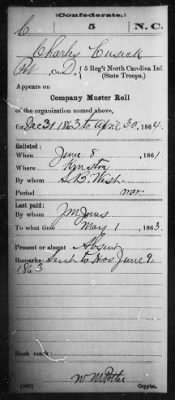 (Confederate.)
C 5 N.C.
Charles Cusack
Pvt Co. D., 5 Reg't North Carolina Inf.
(State Troops.)
Appears on
Company Muster Roll
of the organization named above,
for Dec 31 1863 to April 30, 1864.
Enlisted:
When June 8, 1861
Where
By whom
Period war
Last paid:
By whom J M Jones
To what time May 1, 1863.
Present or absent Absent
Remarks: Sent to Hos June 9
1863
Book mark:
Copyist.